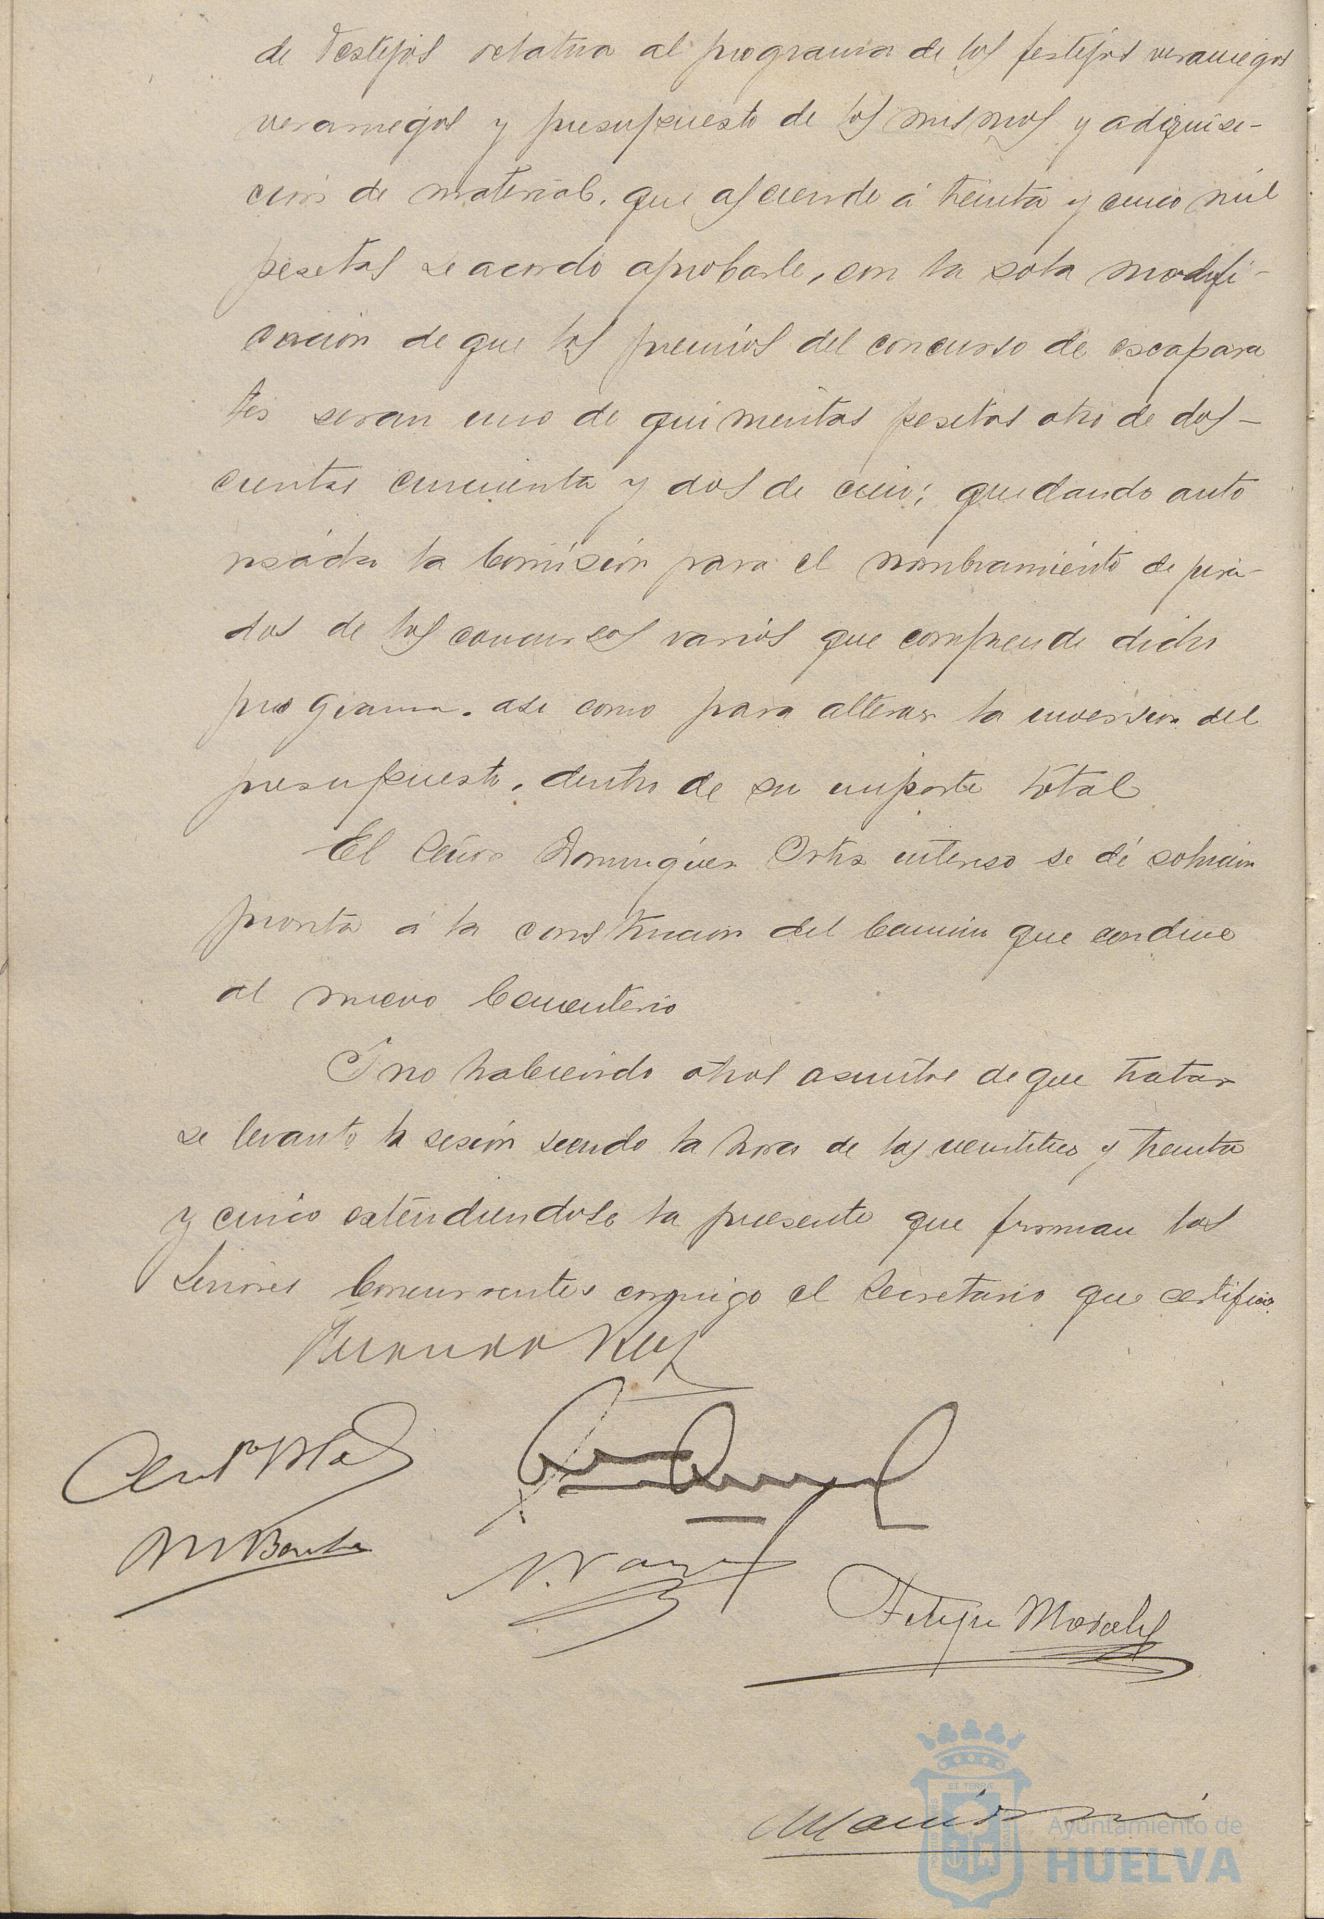 de Festejos relativa al programa de los festejos veraniegos
veraniegos y presupuesto de los mismos y adquisi-
cion de material, que asciende á treinta y cinco mil
pesetas se acordó aprobarle, con la sola modifi-
cacion de que los premios del concurso de escapara
tes seran uno de quinientas pesetas otro de dos-
cientas cincuenta y dos de cien; quedando auto
risada la Comisión para el nombramiento de jura-
dos de los concursos varios que comprende dicho
programa. asi como para alterar la inversion del
presupuesto, dentro de su importe total
El Señor Dominguez Ortiz intereso se dé solucion
pronta á la construcion del Camino que conduce
al nuevo Cementerio
Y no habiendo otros asuntos de que tratar
se levanto la sesión siendo la hora de las veintitres y treinta
y cinco extendiendose la presente que firman los
Señores Concurrentes conmigo el Secretario que certifico
Felipe Morales
ET TERRÆ
Ayuntamiento de
HUELVA